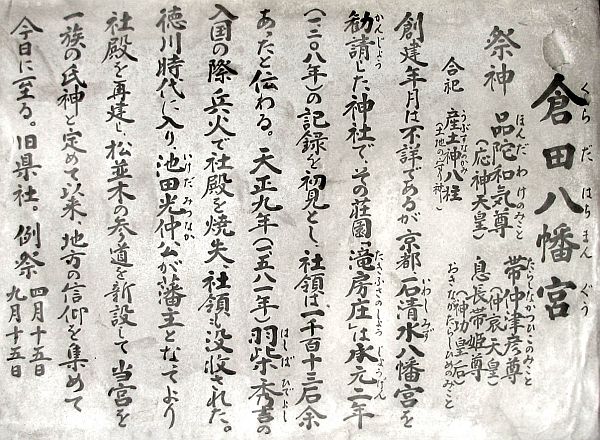 倉田八幡宮
くらだはちまんぐう
祭神 品陀和気尊(応神天皇) 帯仲津彦尊(仲哀天皇) 息長帯姫尊(神功皇后)
合祀 産土神八柱(土地の守り神)
創建年月は不詳であるが京都「石清水八幡宮」を
勧請した神社で、その荘園「滝房庄」は承元二年
(一二〇八年)の記録を初見とし、社領は一千百十三石余
あったと伝わる。天正九年(一五八一年)羽柴秀吉の
入国の際、兵火で社殿を焼失、社領も没収された。
徳川時代に入り、池田光仲公が藩主となってより
社殿を再建し松並木の参道を新設して当宮を
一族の氏神と定めて以来、地方の信仰を集めて
今日に至る。旧県社。例祭 四月十五日 九月十五日